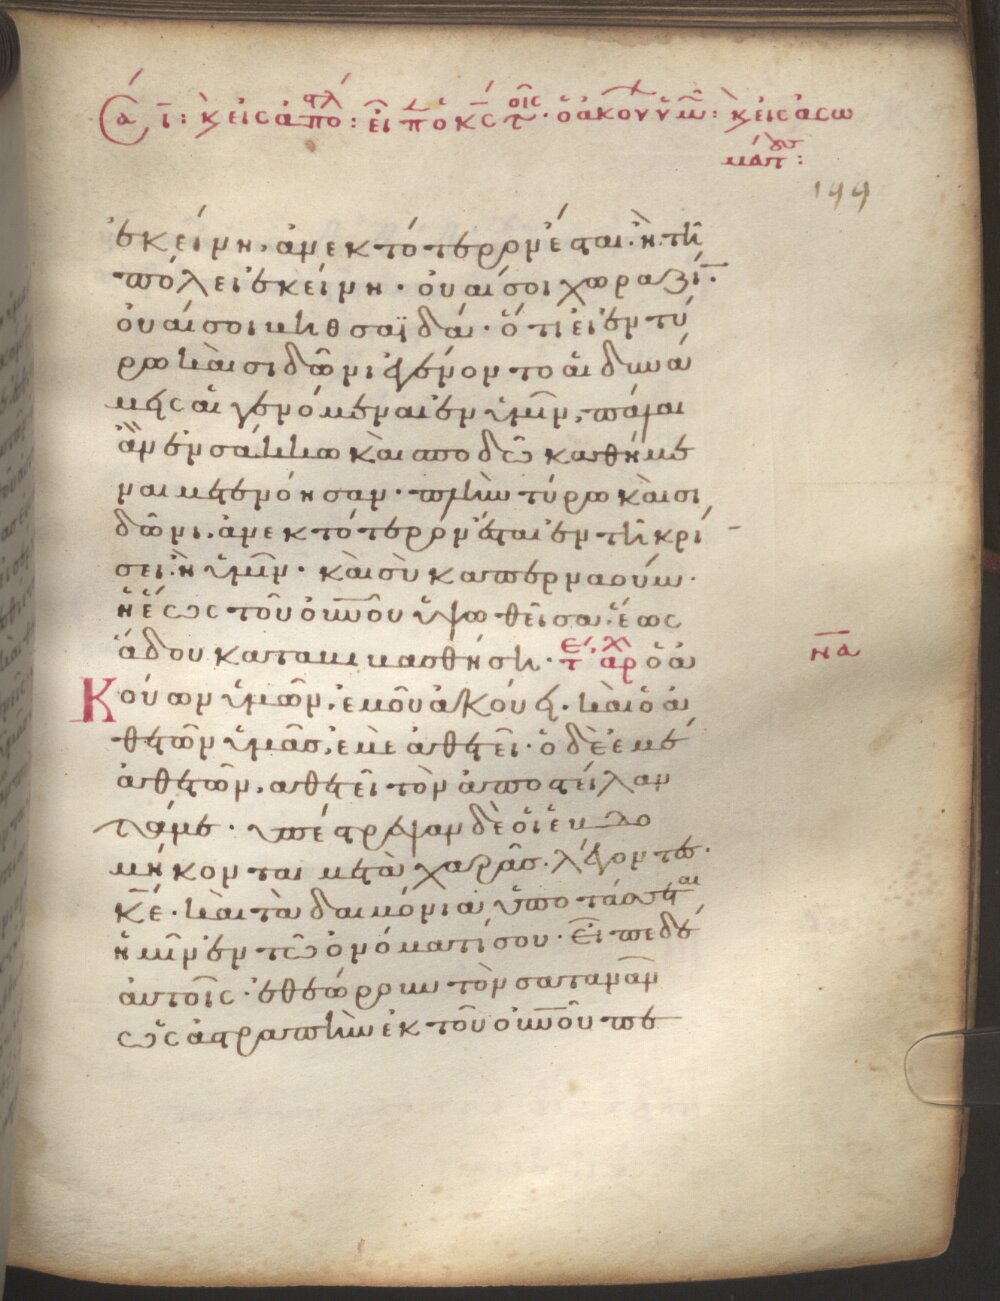 ἐκείνη, ἀνεκτότερον ἔσται. ἢ τῆ
πόλει ἐκείνη · οὐαί σοι χωραζί̄ ·
οὐαί σοι βηθσαϊδά · ὅτι εἰ ἐν τύ
ρω καὶ σιδῶνι ἐγένοντο αἱ δυνά
μεις αἱ γενόμεναι ἐν ὑμῖν, πάλαι
ἂν ἐν σάκκω καὶ σποδῶ καθήμε
ναι μετενόησαν · πλὴν τύρω καὶ σι
δῶνι, ἀνεκτότερον ἔσται ἐν τῆ κρί
σει. ἢ ὑμῖν · καὶ σὺ καπερναούμ ·
ἡ ἕως τοῦ οὐν̅οῦ ὑψωθεῖσα. ἕως
ἅδου καταβιβασθήση · ὁ ἀ
Κούων ὑμῶν, ἐμοῦ ἀκούει · καὶ ὁ ἀ
θετῶν ὑμᾶς, ἐμὲ ἀθετεῖ · ὁ δὲ ἐμὲ
ἀθετῶν, ἀθετεῖ τὸν ἀποστείλαν
τά με · ὑπέστρεψαν δὲ οἱ ἑβδο
μήκοντα μετὰ χαρᾶς. λέγοντες ·
κ̅ε̅ · καὶ τὰ δαιμόνια ὑποτάσσεται
ἡμῖν ἐν τῶ ὀνόματί σου · εἶπε δὲ
αὐτοῖς · ἐθεώρουν τὸν σατανᾶν
ὡς ἀστραπὴν ἐκ τοῦ οὐν̅οῦ πε